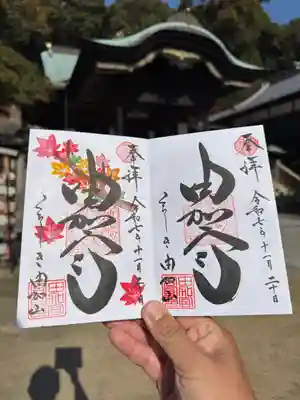 奉拝
令和七年十一月二十日
由加山
くらしき 由加山
奉拝
令和七年十一月
由加山
くらしき 由加山